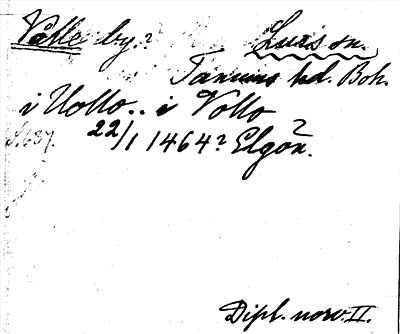 Välle by.? Lurs sn.
Tanums hd. Boh.
i Uollo.. i Vollo
s. 637. 22/1 1464? Elgön?
Dipl. norv. II.